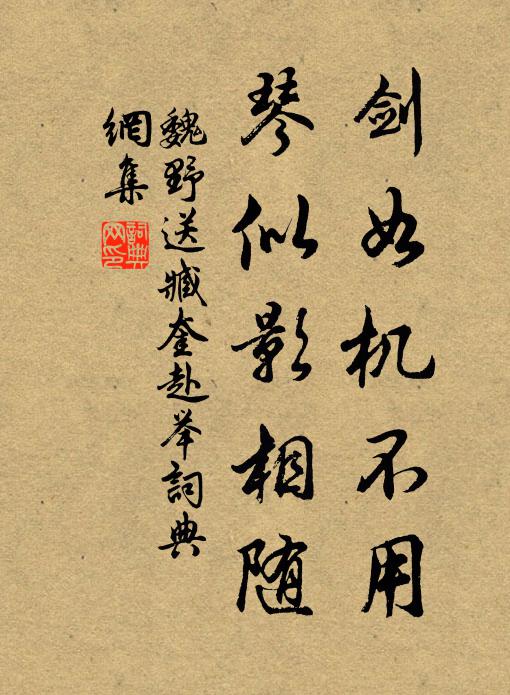 剑如机不用
琴似影相随
魏野送臧奎赴举词典
網集
詞典
网印